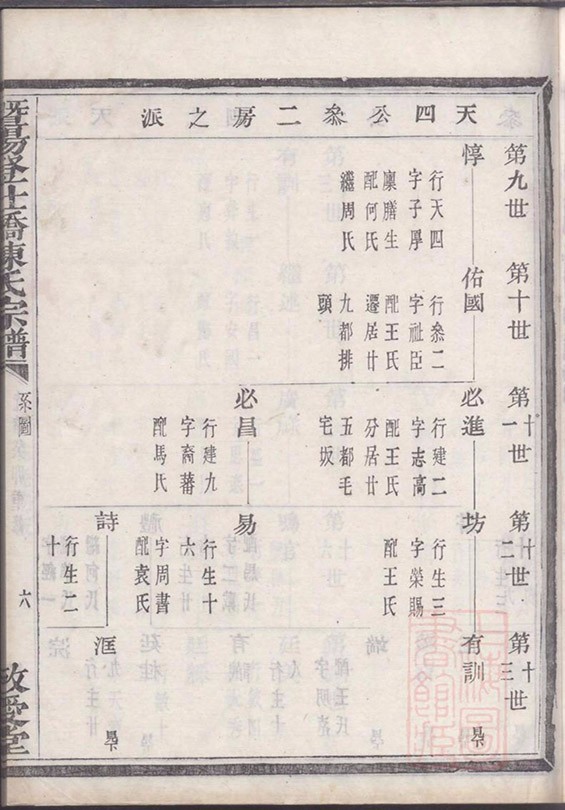 天四公叅二房之派
第九世
第十世
第十一世
第十二世
第十三世
惇
行天四
字子厚
廩膳生
配何氏
繼周氏
佑國
行叅二
字祉臣
配王氏
遷居廿
九都排
頭
必進
行建二
字志高
配王氏
分居廿
五都毛
宅坂
坊
行生三
字榮賜
配王氏
有訓
必昌
行建九
字裔蕃
配馬氏
易
行生十
六
字周書
配袁氏
詩
行生二
十
洭
暨陽登仕橋陳氏宗譜
系圖
六
敦愛堂